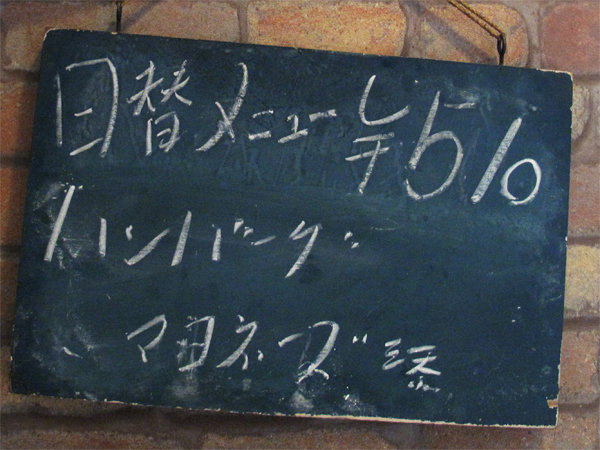 日替メニュー ¥510
ハンバーグ
マヨネーズ添